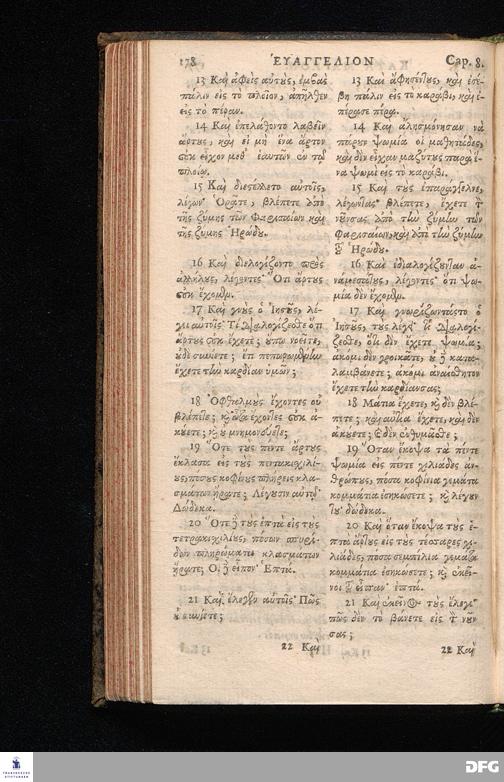 178 ΕΥΑΓΓΕΛΙΟΝ Cap. 8.
13 Καὶ ἀφεὶς αὐτοὺς, ἐμβὰς
πάλιν εἰς τὸ πλοῖον, ἀπῆλθεν
εἰς τὸ πέραν.
14 Καὶ ἐπελάθοντο λαβεῖν
ἄρτους, καὶ εἰ μὴ ἕνα ἄρτον
οὐκ εἶχον μεθ' ἑαυτῶν ἐν τῷ
πλοίῳ.
15 Καὶ διεστέλλετο αὐτοῖς,
λέγων· Ὁρᾶτε, βλέπετε ἀπὸ
τῆς ζύμης τῶν Φαρισαίων καὶ
τῆς ζύμης Ἡρώδου.
16 Καὶ διελογίζοντο πρὸς
ἀλλήλους, λέγοντες· Ὅτι ἄρτους
οὐκ ἔχομεν.
17 Καὶ γνοὺς ὁ Ἰησοῦς, λέ-
γει αὐτοῖς· Τί διαλογίζεσθε ὅτι
ἄρτους οὐκ ἔχετε; οὔπω νοεῖτε,
οὐδὲ συνίετε; ἔτι πεπωρωμένην
ἔχετε τὴν καρδίαν ὑμῶν;
18 Ὀφθαλμοὺς ἔχοντες οὐ
βλέπετε; καὶ ὦτα ἔχοντες οὐκ ἀ-
κούετε; καὶ οὐ μνημονεύετε;
19 Ὅτε τοὺς πέντε ἄρτους
ἔκλασα εἰς τοὺς πεντακισχιλί-
ους, πόσους κοφίνους πλήρεις κλα-
σμάτων ἤρατε; Λέγουσιν αὐτῷ·
Δώδεκα.
20 Ὅτε δὲ τοὺς ἑπτὰ εἰς τοὺς
τετρακισχιλίους, πόσων σπυρί-
δων πληρώματα κλασμάτων
ἤρατε; Οἱ δὲ εἶπον· Ἑπτά.
21 Καὶ ἔλεγεν αὐτοῖς· Πῶς
οὐ συνίετε;
22 Καὶ
13 Καὶ ἀφησέντους, καὶ ἐσέ-
βη πάλιν εἰς τὸ καράβι, καὶ ἐ-
πέρασε πέρα.
14 Καὶ ἀλησμόνησαν νὰ
πάρουν ψωμία οἱ μαθητάδες,
καὶ δὲν εἶχαν μαζύτους παρὰ ἕ-
να ψωμὶ εἰς τὸ καράβι.
15 Καὶ τοὺς ἐπαράγγελνε,
λέγωντας· βλέπετε, ἔχετε τὸν
νοῦνσας ἀπὸ τὴν ζύμην τῶν
Φαρισαίων, καὶ ἀπὸ τὴν ζύμην
τοῦ Ἡρώδου.
16 Καὶ ἐδιαλογίζουνταν ἀ-
νάμεσότους, λέγοντες· ὅτι ψω-
μία δὲν ἔχομεν.
17 Καὶ γνωρίζωντάςτο ὁ
Ἰησοῦς, τοὺς λέγει· τί διαλογί-
ζεσθε, ὅτι δὲν ἔχετε ψωμία;
ἀκόμι δὲν γροικᾶτε, οὐδὲ κατα-
λαμβάνετε; ἀκόμι ἀναίσθητον
ἔχετε τὴν καρδίανσας;
18 Μάτια ἔχετε, καὶ δὲν βλέ-
πετε; καὶ αὐτία ἔχετε, καὶ δὲν
ἀκούετε; καὶ δὲν ἐνθυμᾶσθε;
19 Ὅταν ἔκοψα τὰ πέντε
ψωμία εἰς πέντε χιλιάδες ἀν-
θρώπους, πόσα κοφίνια γεμάτα
κομμάτια ἐσηκώσετε; καὶ λέγουν
του· δώδεκα.
20 Καὶ ὅταν ἔκοψα τοὺς ἑ-
πτὰ ἄρτους εἰς τοὺς τέσσαρες χι-
λιάδες, πόσα σεμπίλια γεμάτα
κομμάτια ἐσηκώσετε; καὶ ἐκεῖ-
νοι τοῦ εἶπαν· ἑπτά.
21 Καὶ ἐκεῖνος τοὺς ἔλεγε·
πῶς δὲν τὸ βάνετε εἰς τὸν νοῦν
σας;
22 Καὶ
FRANCKESCHE
STIFTUNGEN
DFG